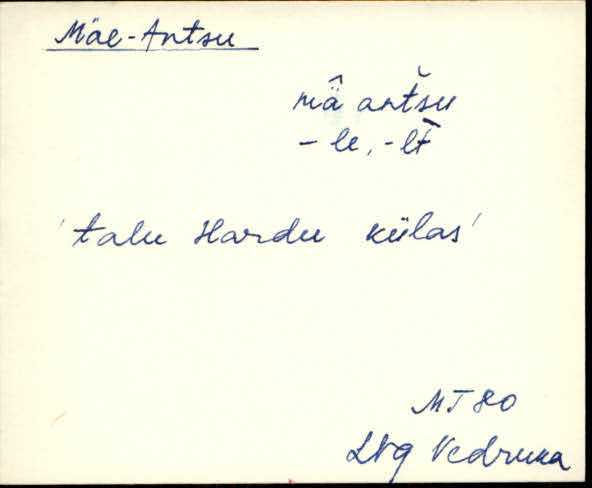 Mäe-Antsu
mä̂ antšu
- le, - lt̄
'talu Hardu külas'
MT 80
LNg Vedruka